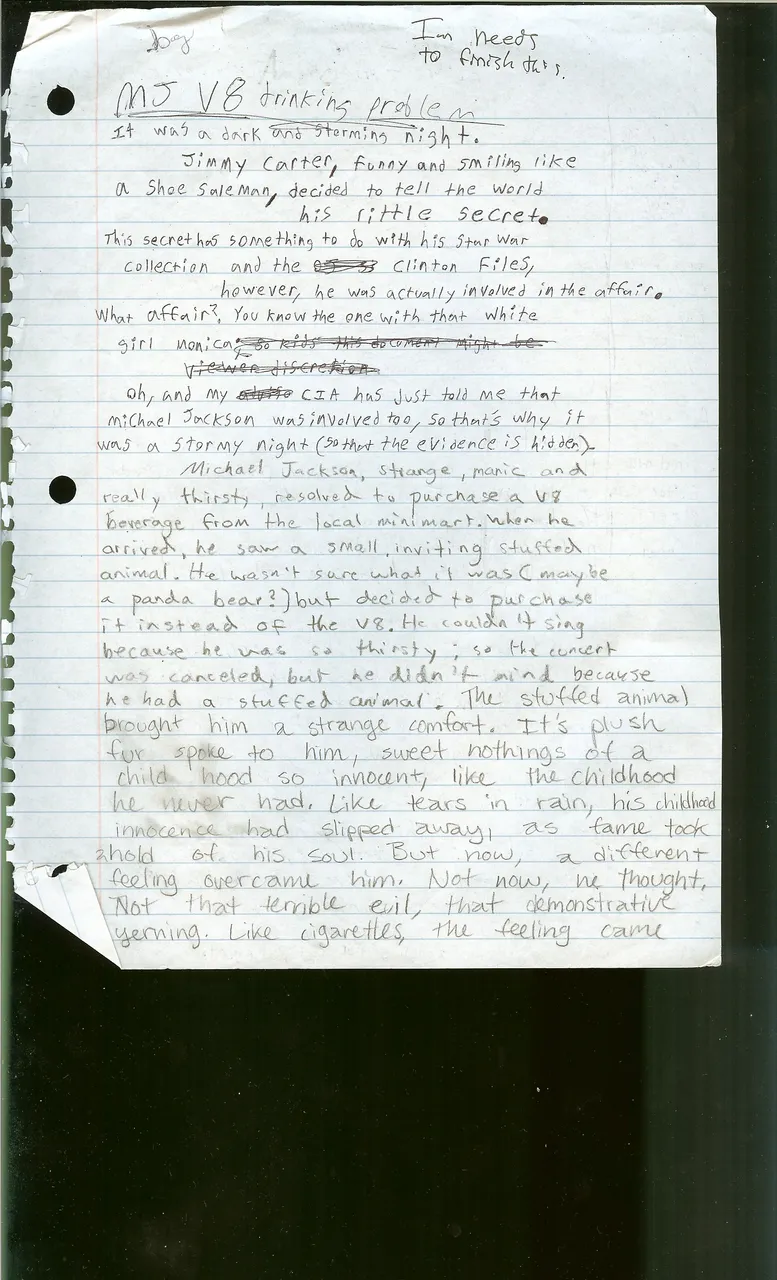 by
Ian needs
to finish this.
MJ V8 drinking problem
It was a dark and storming night.
Jimmy Carter, funny and smiling like
a Shoe Saleman, decided to tell the world
his rittle secret.
This secret has something to do with his Star War
collection and the Clinton Files,
however, he was actually involved in the affair.
What affair?, You know the one with that white
girl monica; so kids this document might be
viewer discretion
oh, and my CIA has just told me that
michael Jackson was involved too, so that's why it
was a stormy night (so that the evidence is hidden).
Michael Jackson, strange, manic and
really thirsty, resolved to purchase a V8
beverage from the local minimart. When he
arrived, he saw a small, inviting stuffed
animal. He wasn't sure what it was (maybe
a panda bear?) but decided to purchase
it instead of the V8. He couldn't sing
because he was so thirsty; so the concert
was canceled, but he didn't mind because
he had a stuffed animal. The stuffed animal
brought him a strange comfort. It's plush
fur spoke to him, sweet nothings of a
child hood so innocent, like the childhood
he never had. Like tears in rain, his childhood
innocence had slipped away, as fame took
ahold of his soul. But now, a different
feeling overcame him. Not now, he thought.
Not that terrible evil, that demonstrative
yerning. Like cigarettes, the feeling came